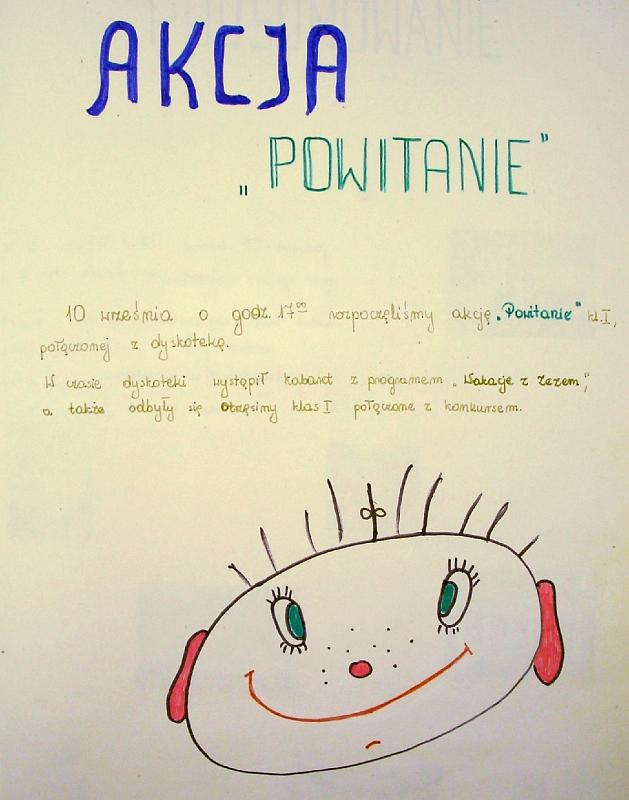 AKCJA
„POWITANIE”
10 września o godz. 17⁰⁰ rozpoczęliśmy akcję „Powitanie” kl. I,
połączonej z dyskoteką.
W czasie dyskoteki wystąpił kabaret z programem „Wakacje z Zezem”,
a także odbyły się Otrzęsiny klas I połączone z konkursem.